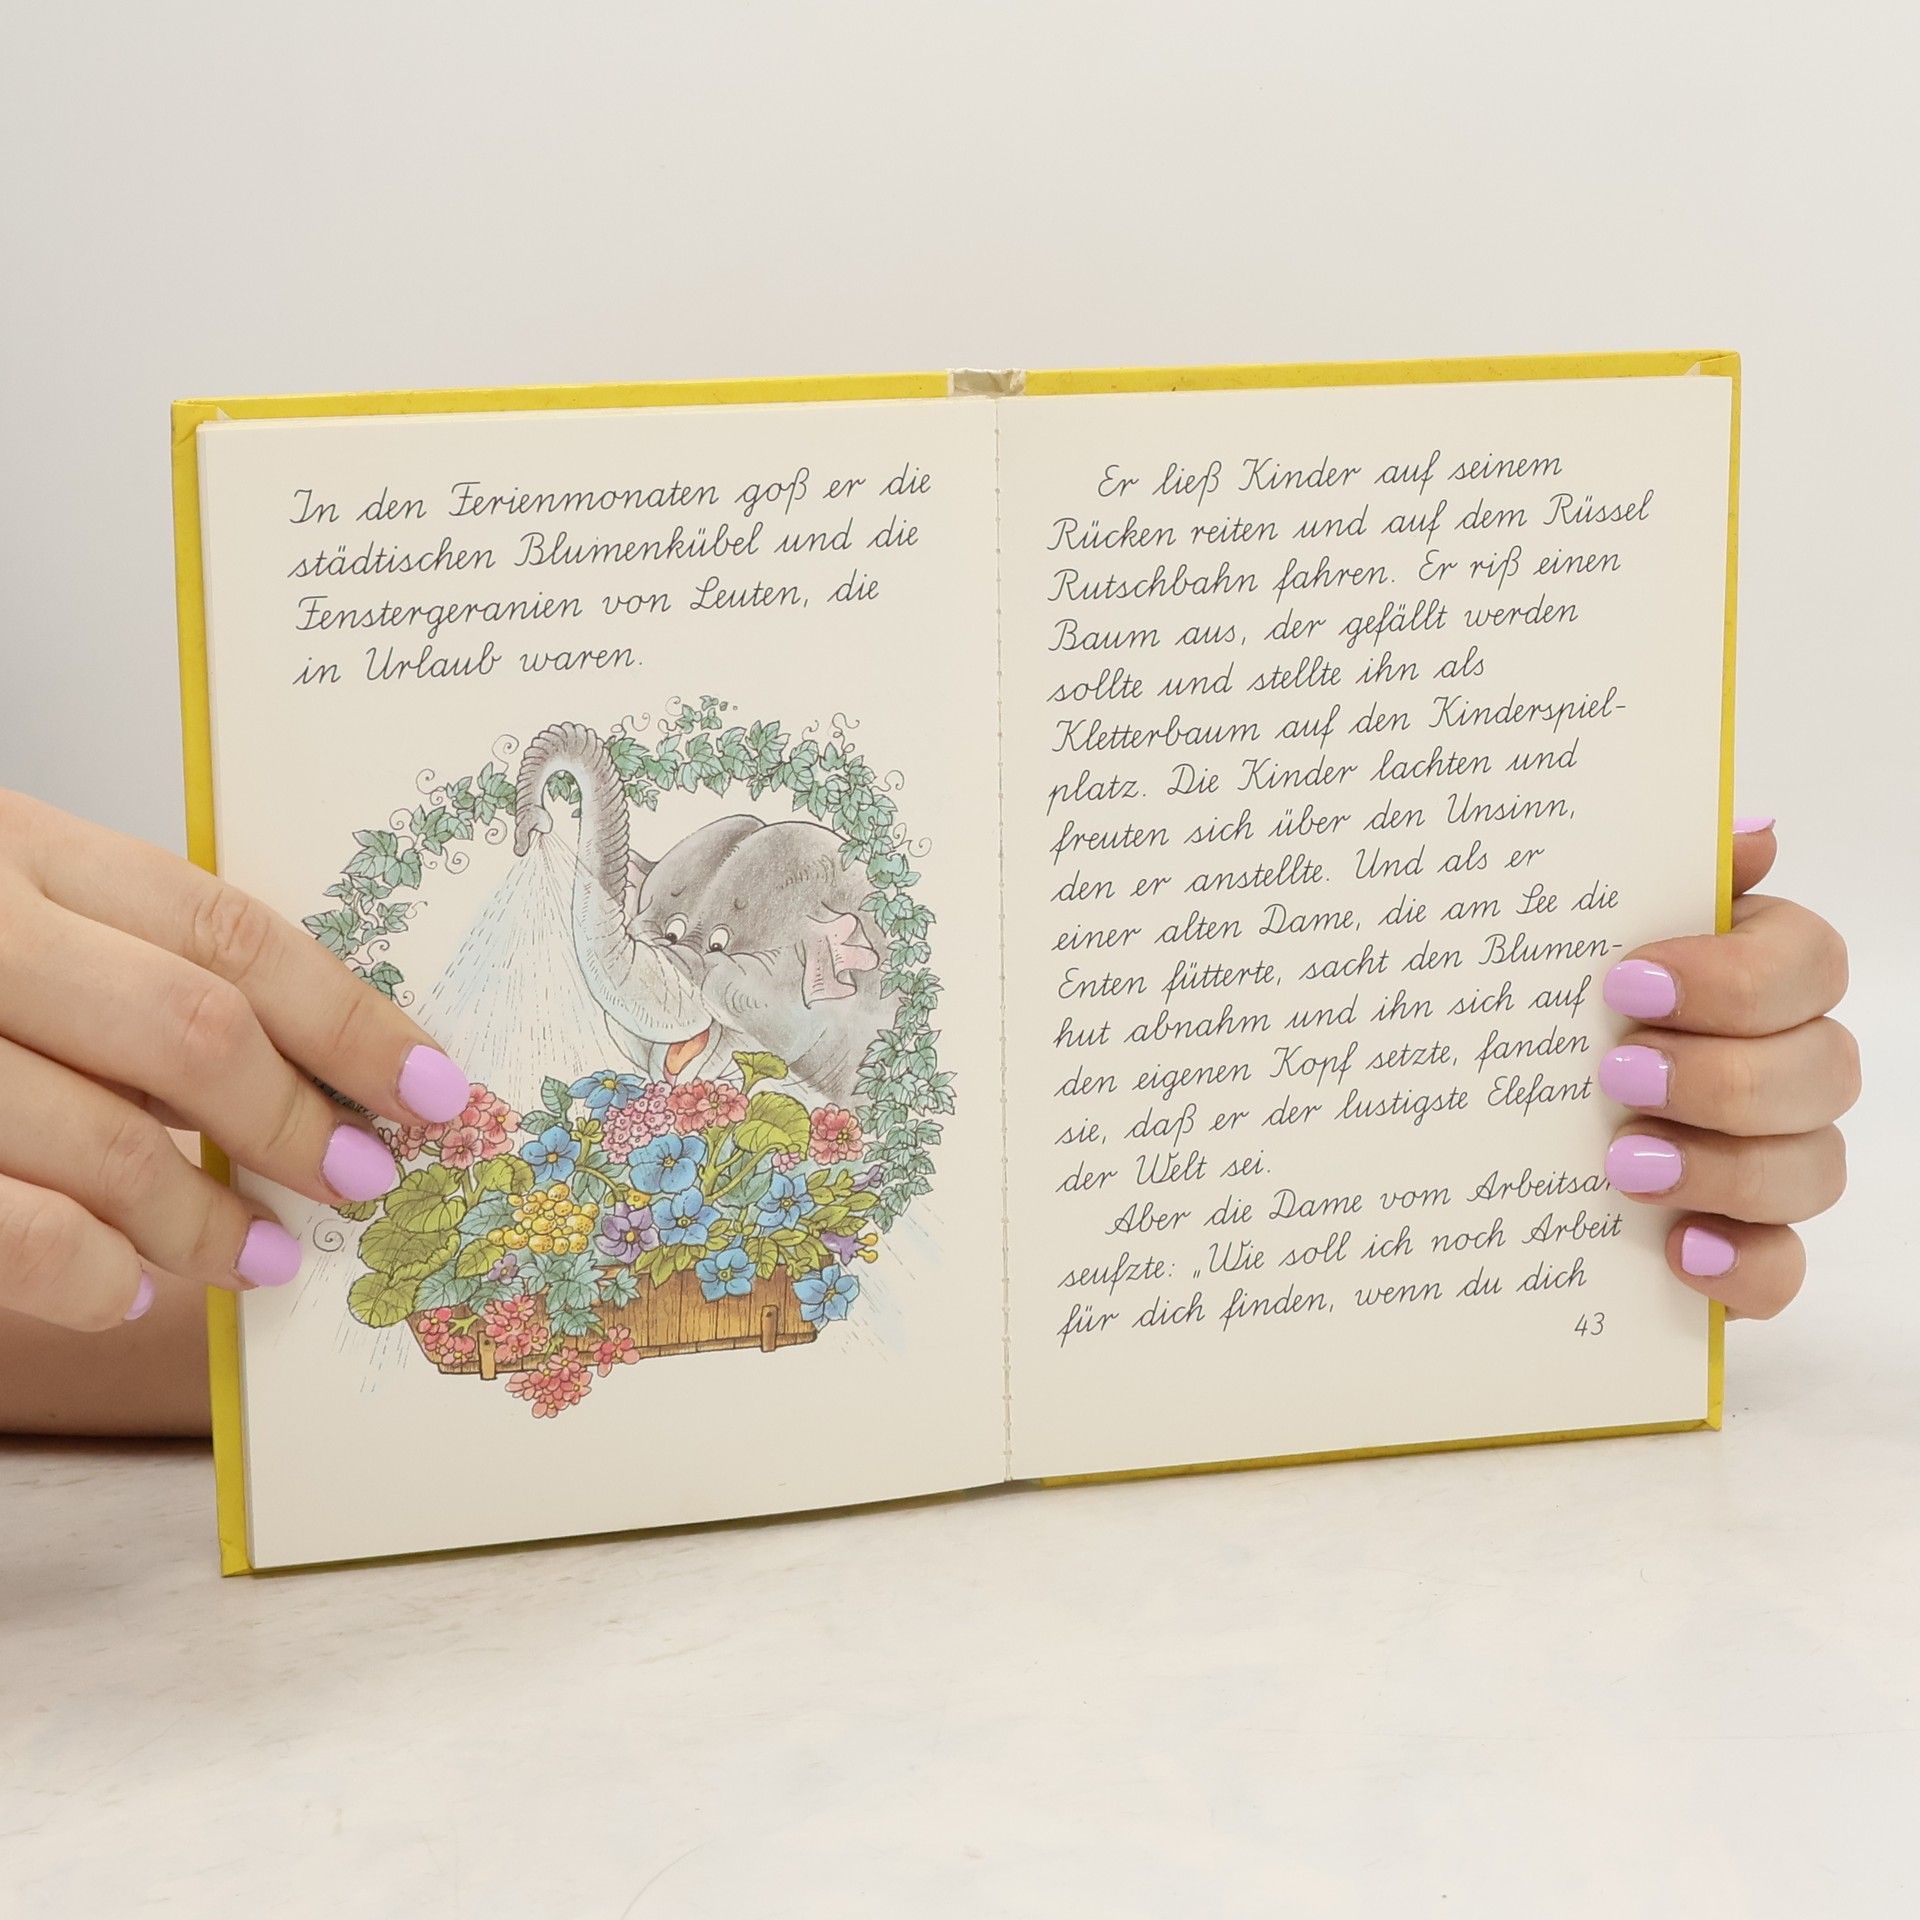 In den Ferienmonaten goß er die
städtischen Blumenkübel und die
Fenstergeranien von Leuten, die
in Urlaub waren.
Er ließ Kinder auf seinem
Rücken reiten und auf dem Rüssel
Rutschbahn fahren. Er riß einen
Baum aus, der gefällt werden
sollte und stellte ihn als
Kletterbaum auf den Kinderspiel-
platz. Die Kinder lachten und
freuten sich über den Unsinn,
den er anstellte. Und als er
einer alten Dame, die am See die
Enten fütterte, sacht den Blumen-
hut abnahm und ihn sich auf
den eigenen Kopf setzte, fanden
sie, daß er der lustigste Elefant
der Welt sei.
Aber die Dame vom
seufzte: „Wie soll ich noch Arbeit
für dich finden, wenn du dich
43